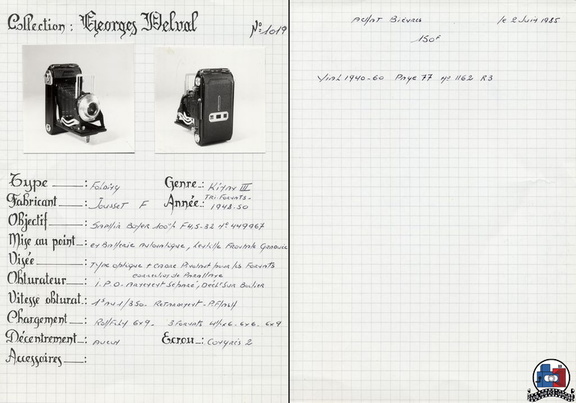 Collection : Georges Delval N°1019
Type : Folding Genre : Kinax III
Fabricant : Jousset F Année : Tri Formats - 1948-50
Objectif : Boyer 100% F4,5-32 n° 449967
Mise au point : en Batterie Automatique, Lentille Frontale
Visée : Type optique + Cadre Pivotant pour les Formats
correcteur de Parallaxe
Obturateur : I.P.O. Armement Séparé, Décl. Sur Boitier
Vitesse obturat. : 1" au 1/350. Retardement - P. Flash
Chargement : Rollfilm 6x9 - 3 Formats 4½x6 - 6x6 - 6x9
Décentrement : Aucun Ecrou : Congrès 2
Accessoires :
Achat Bièvres le 2 Juin 1985
150F
Vial 1940-60 Page 77 n° 1162 R3